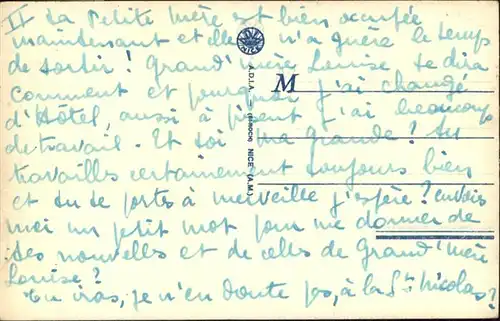 II La Petite mère est bien occupée
maintenant et elle n'a guère le temps
de sortir ! Grand'mère Louise te dira
comment et pourquoi j'ai changé
d'Hôtel, aussi à présent j'ai beaucoup
de travail. Et toi ma grande ! Tu
travailles certainement toujours bien
et tu te portes à merveille j'espère ? envoies
moi un petit mot pour me donner de
tes nouvelles et de celles de Grand'mère
Louise ?
Tu iras, je n'en doute pas, à la St Nicolas ?
M
A.D.I.A. NICE (A.M.)